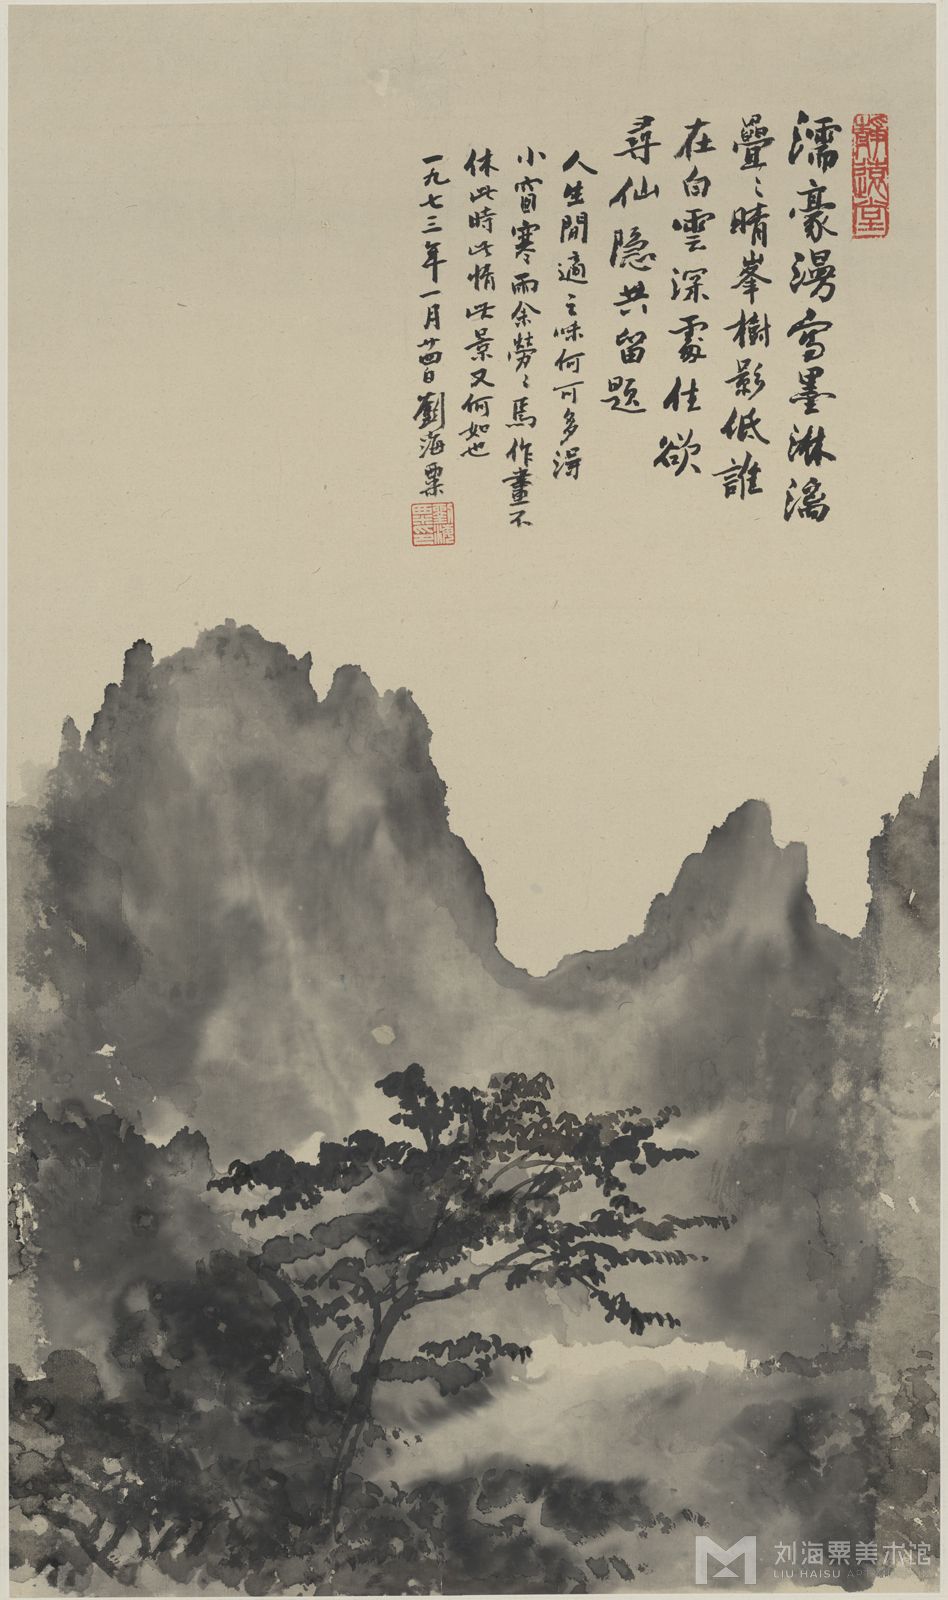 靜遠堂
濡豪漫寫墨淋漓
疊〻晴峯樹影低誰
在白雲深處住欲
尋仙隐共留題
人生間適之味何可多得
小窗寒雨余勞〻焉作畫不
休此時此情此景又何如也
一九七三年一月廿四日劉海粟
劉海粟印
刘海粟美术馆
LIU HAISU ART MUSEUM